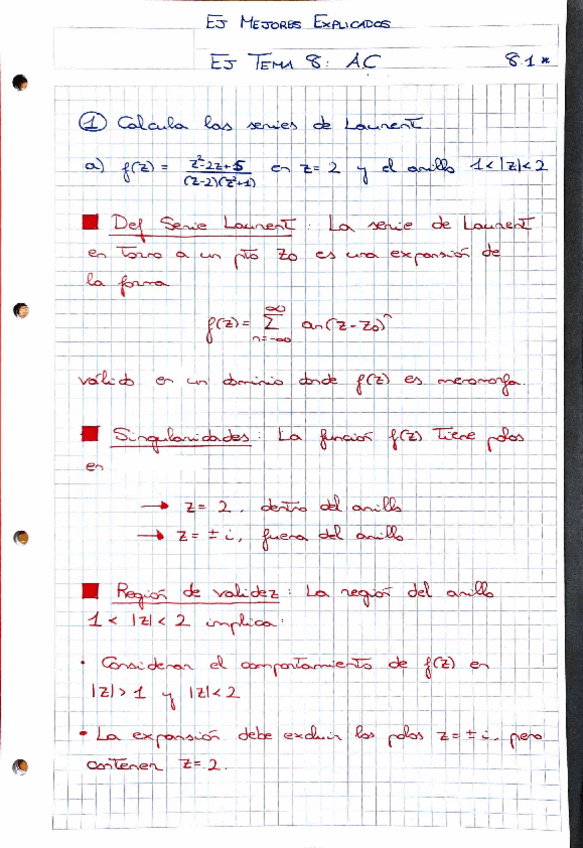 EJ MEJORES EXPLICADOS
EJ TEMA 8: AC 8.1*
① Calcula las series de Laurent
a) f(z) = (z²-2z+5)/((z-2)(z²+1)) en z=2 y el anillo 1<|z|<2
Def Serie Laurent: La serie de Laurent
en torno a un pto z₀ es una expansión de
la forma
f(z) = Σ_{n=-∞}^{∞} an(z-z₀)ⁿ
válido en un dominio donde f(z) es meromorfa.
Singularidades: La función f(z) tiene polos
en
→ z = 2, dentro del anillo
→ z = ± i, fuera del anillo
Región de validez: La región del anillo
1 < |z| < 2 implica:
· Considerar el comportamiento de f(z) en
|z| > 1 y |z| < 2
· La expansión debe excluir los polos z = ± i, pero
contener z = 2.